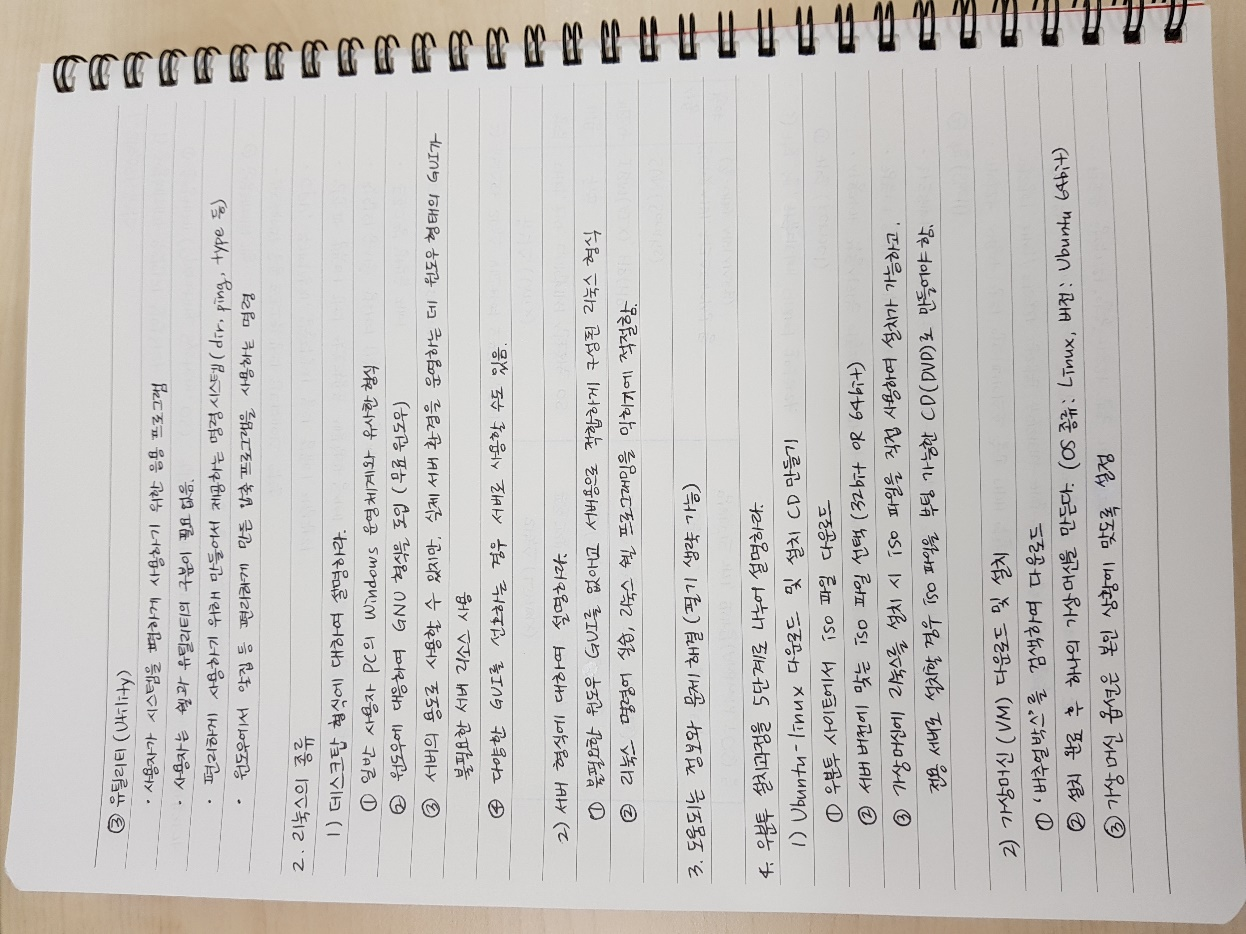 ③ 유틸리티 (Utility)
• 사용자가 시스템을 편리하게 사용하기 위한 응용 프로그램
• 사용자를 위한 유틸리티 구현이 목표임.
• 편리하게 사용하기 위해 만들어서 제공하는 명령시스템 (dir, ping, type 등)
• 윈도우에서 이것을 등 편리하게 만든 보조 프로그램을 사용하는 명령
2. 리눅스의 종류
1) 데스크탑 형식에 대하여 설명하라.
① 일반 사용자 PC의 Windows 운영체제와 유사한 형식
② 윈도우에 대응하여 GNU 형식을 도입 (무료 윈도우)
③ 서버의 용도로 사용할 수 있지만, 실제 서버 환경을 운영하는 데 윈도우 형태의 GUI가
불필요한 서버 리소스 사용
④ 다양한 GUI를 선호하는 경우 서버로 사용할 수도 있음.
2) 서버 형식에 대하여 설명하라.
① 불필요한 윈도우 (GUI)를 없애고 서버용으로 적합하게 구성된 리눅스 형식
② 리눅스 명령어 실습, 리눅스 쉘 프로그래밍을 익히기에 적절함.
3. 도움되는 정보와 문제 해결 (필기 생략 가능)
4. 우분투 설치과정을 5단계로 나누어 설명하라.
1) Ubuntu-linux 다운로드 및 설치 CD 만들기
① 우분투 사이트에서 iso 파일 다운로드
② 서버 버전에 맞는 iso 파일 선택 (32bit OR 64bit)
③ 가상머신에 리눅스를 설치 시 iso 파일을 직접 사용하여 설치가 가능하고,
전용 서버로 설치할 경우 iso 파일을 부팅 가능한 CD(DVD)로 만들어야 함.
2) 가상머신 (VM) 다운로드 및 설치
① '버추얼박스'를 검색하여 다운로드
② 설치 완료 후 하나의 가상머신을 만든다. (OS 종류: Linux, 버전: Ubuntu 64bit)
③ 가상 머신 옵션은 실습 상황에 맞도록 설정